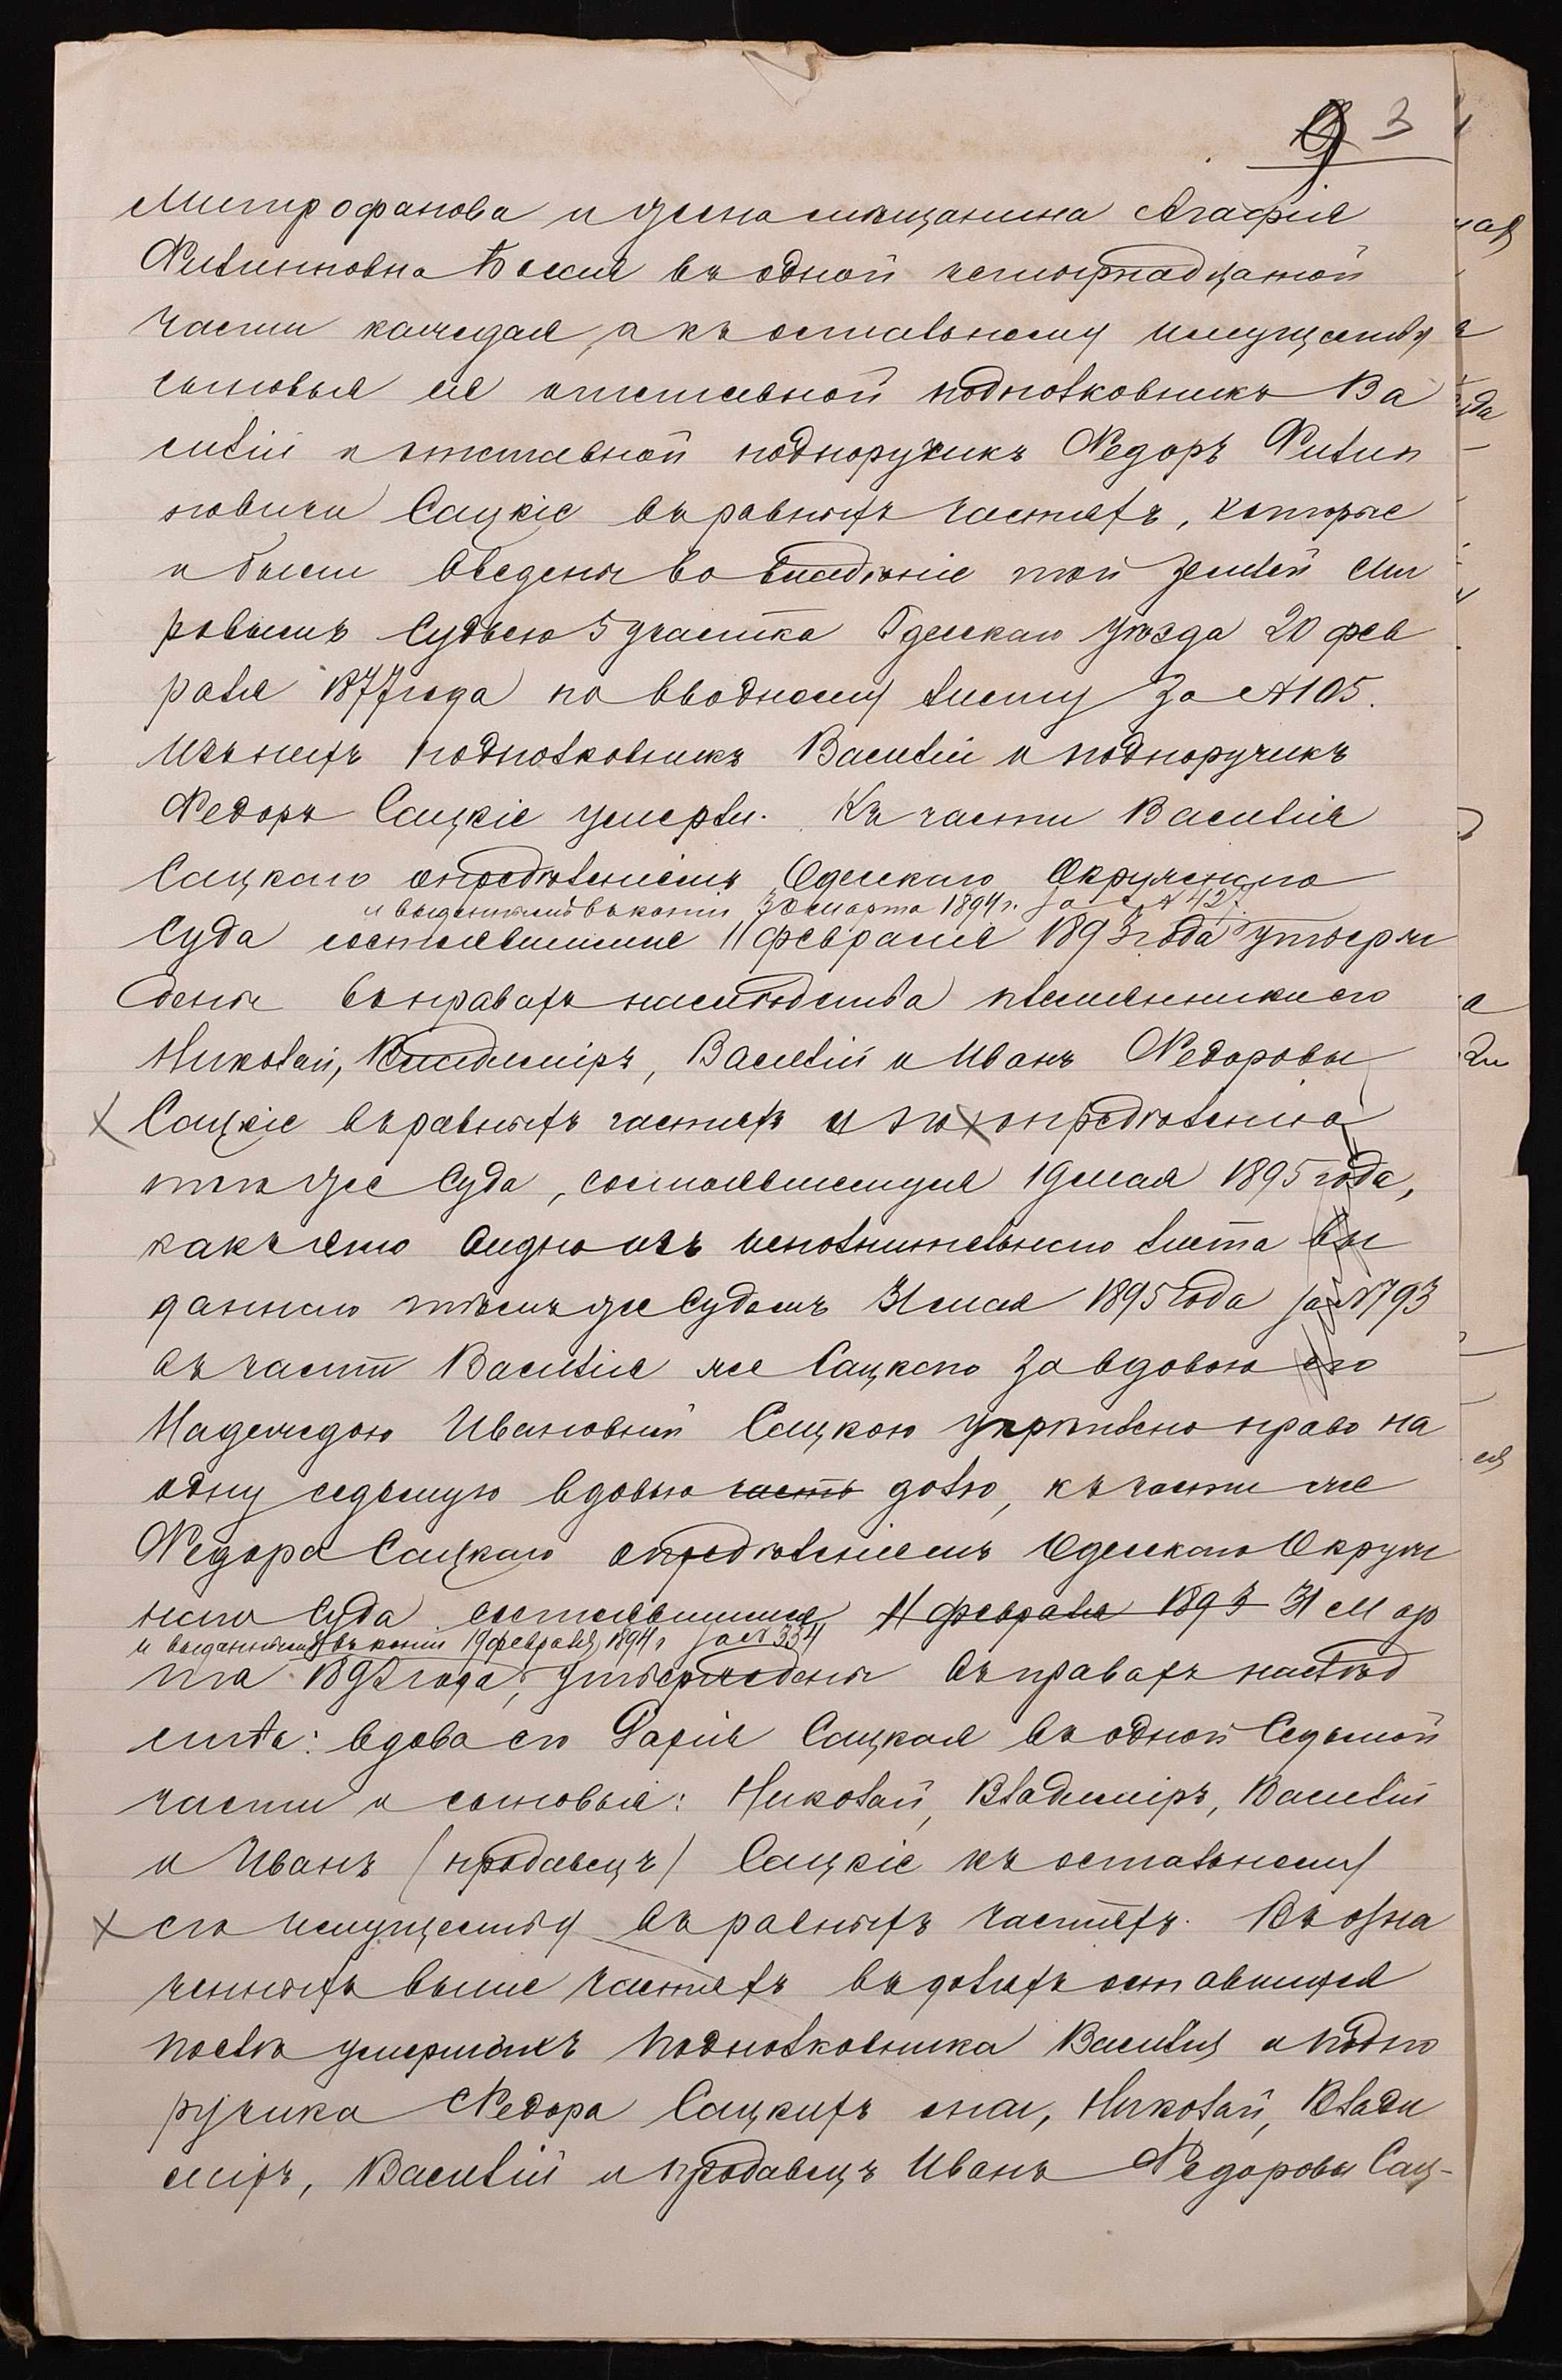 3
Митрофанова и жена мещанина Агафія
Филиповна Бессия въ одной четырнадцатой
части каждая, а къ остальному имуществу
сыновья ея отставной подполковникъ Ва
силій и отставной подпоручикъ Федоръ Филип
повичи Сацкіе въ равныхъ частяхъ, которые
и были введены во владѣніе той землей Ми
ровымъ Судьею 5 участка Одесскаго уѣзда 20 фев
раля 1877 года по вводному листу за № 105.
Изъ нихъ подполковникъ Василій и подпоручикъ
Федоръ Сацкіе умерли. Къ части Василія
Сацкаго опредѣленіемъ Одесскаго Окружнаго
и выданнымъ въ копіи 30 марта 1894 г. за № 427
Суда состоявшимся 11 февраля 1893 года утверж
дены въ правахъ наслѣдства племянники его
Николай, Владиміръ, Василій и Иванъ Федоровы
Сацкіе въ равныхъ частяхъ и по опредѣленію
того же Суда, состоявшемуся 19 мая 1895 года,
какъ это видно изъ исполнительнаго листа вы
даннаго тѣмъ же Судомъ 31 мая 1895 года за № 793
въ части Василія же Сацкаго за вдовою его
Надеждою Ивановной Сацкою укрѣплено право на
одну седьмую вдовью часть долю, къ части же
Федора Сацкаго опредѣленіемъ Одесскаго Окруж
наго Суда состоявшимся 11 февраля 1893 31 мар
и выданнымъ въ копіи 19 февраля 1894 г. за № 334
та 1892 года, утверждены въ правахъ наслѣд
ства: вдова его Дарія Сацкая въ одной Седьмой
части и сыновья: Николай, Владиміръ, Василій
и Иванъ (продавецъ) Сацкіе къ остальному
его имуществу въ равныхъ частяхъ. Въ озна
ченныхъ выше частяхъ въ доляхъ оставшихся
послѣ умершихъ подполковника Василія и подпо
ручика Федора Сацкихъ они, Николай, Влади
міръ, Василій и продавецъ Иванъ Федоровы Сац-